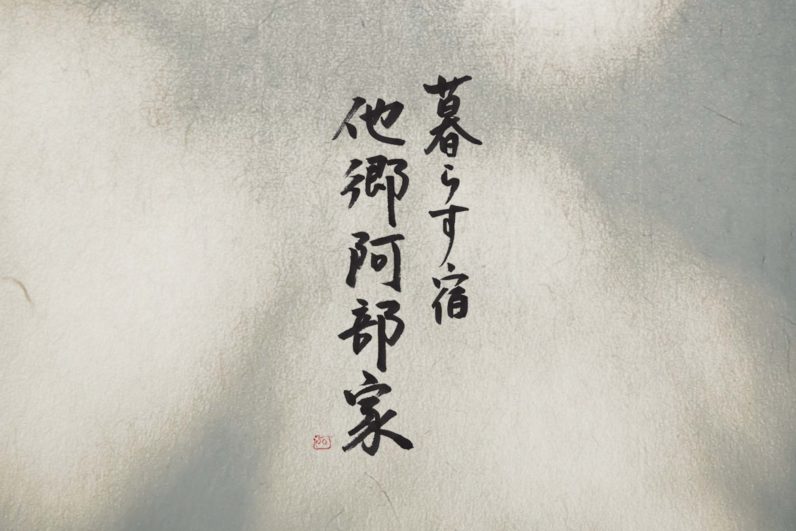 暮らす宿
他郷阿部家